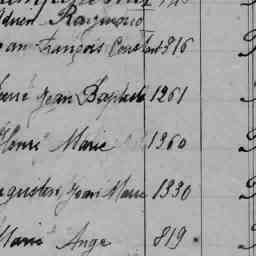 Adrien Raymond
Jean François Constant 816
Pierre Jean Baptiste 1261
Henri Marie 1360
Augustin Jean Marie 1330
Marie Ange 819